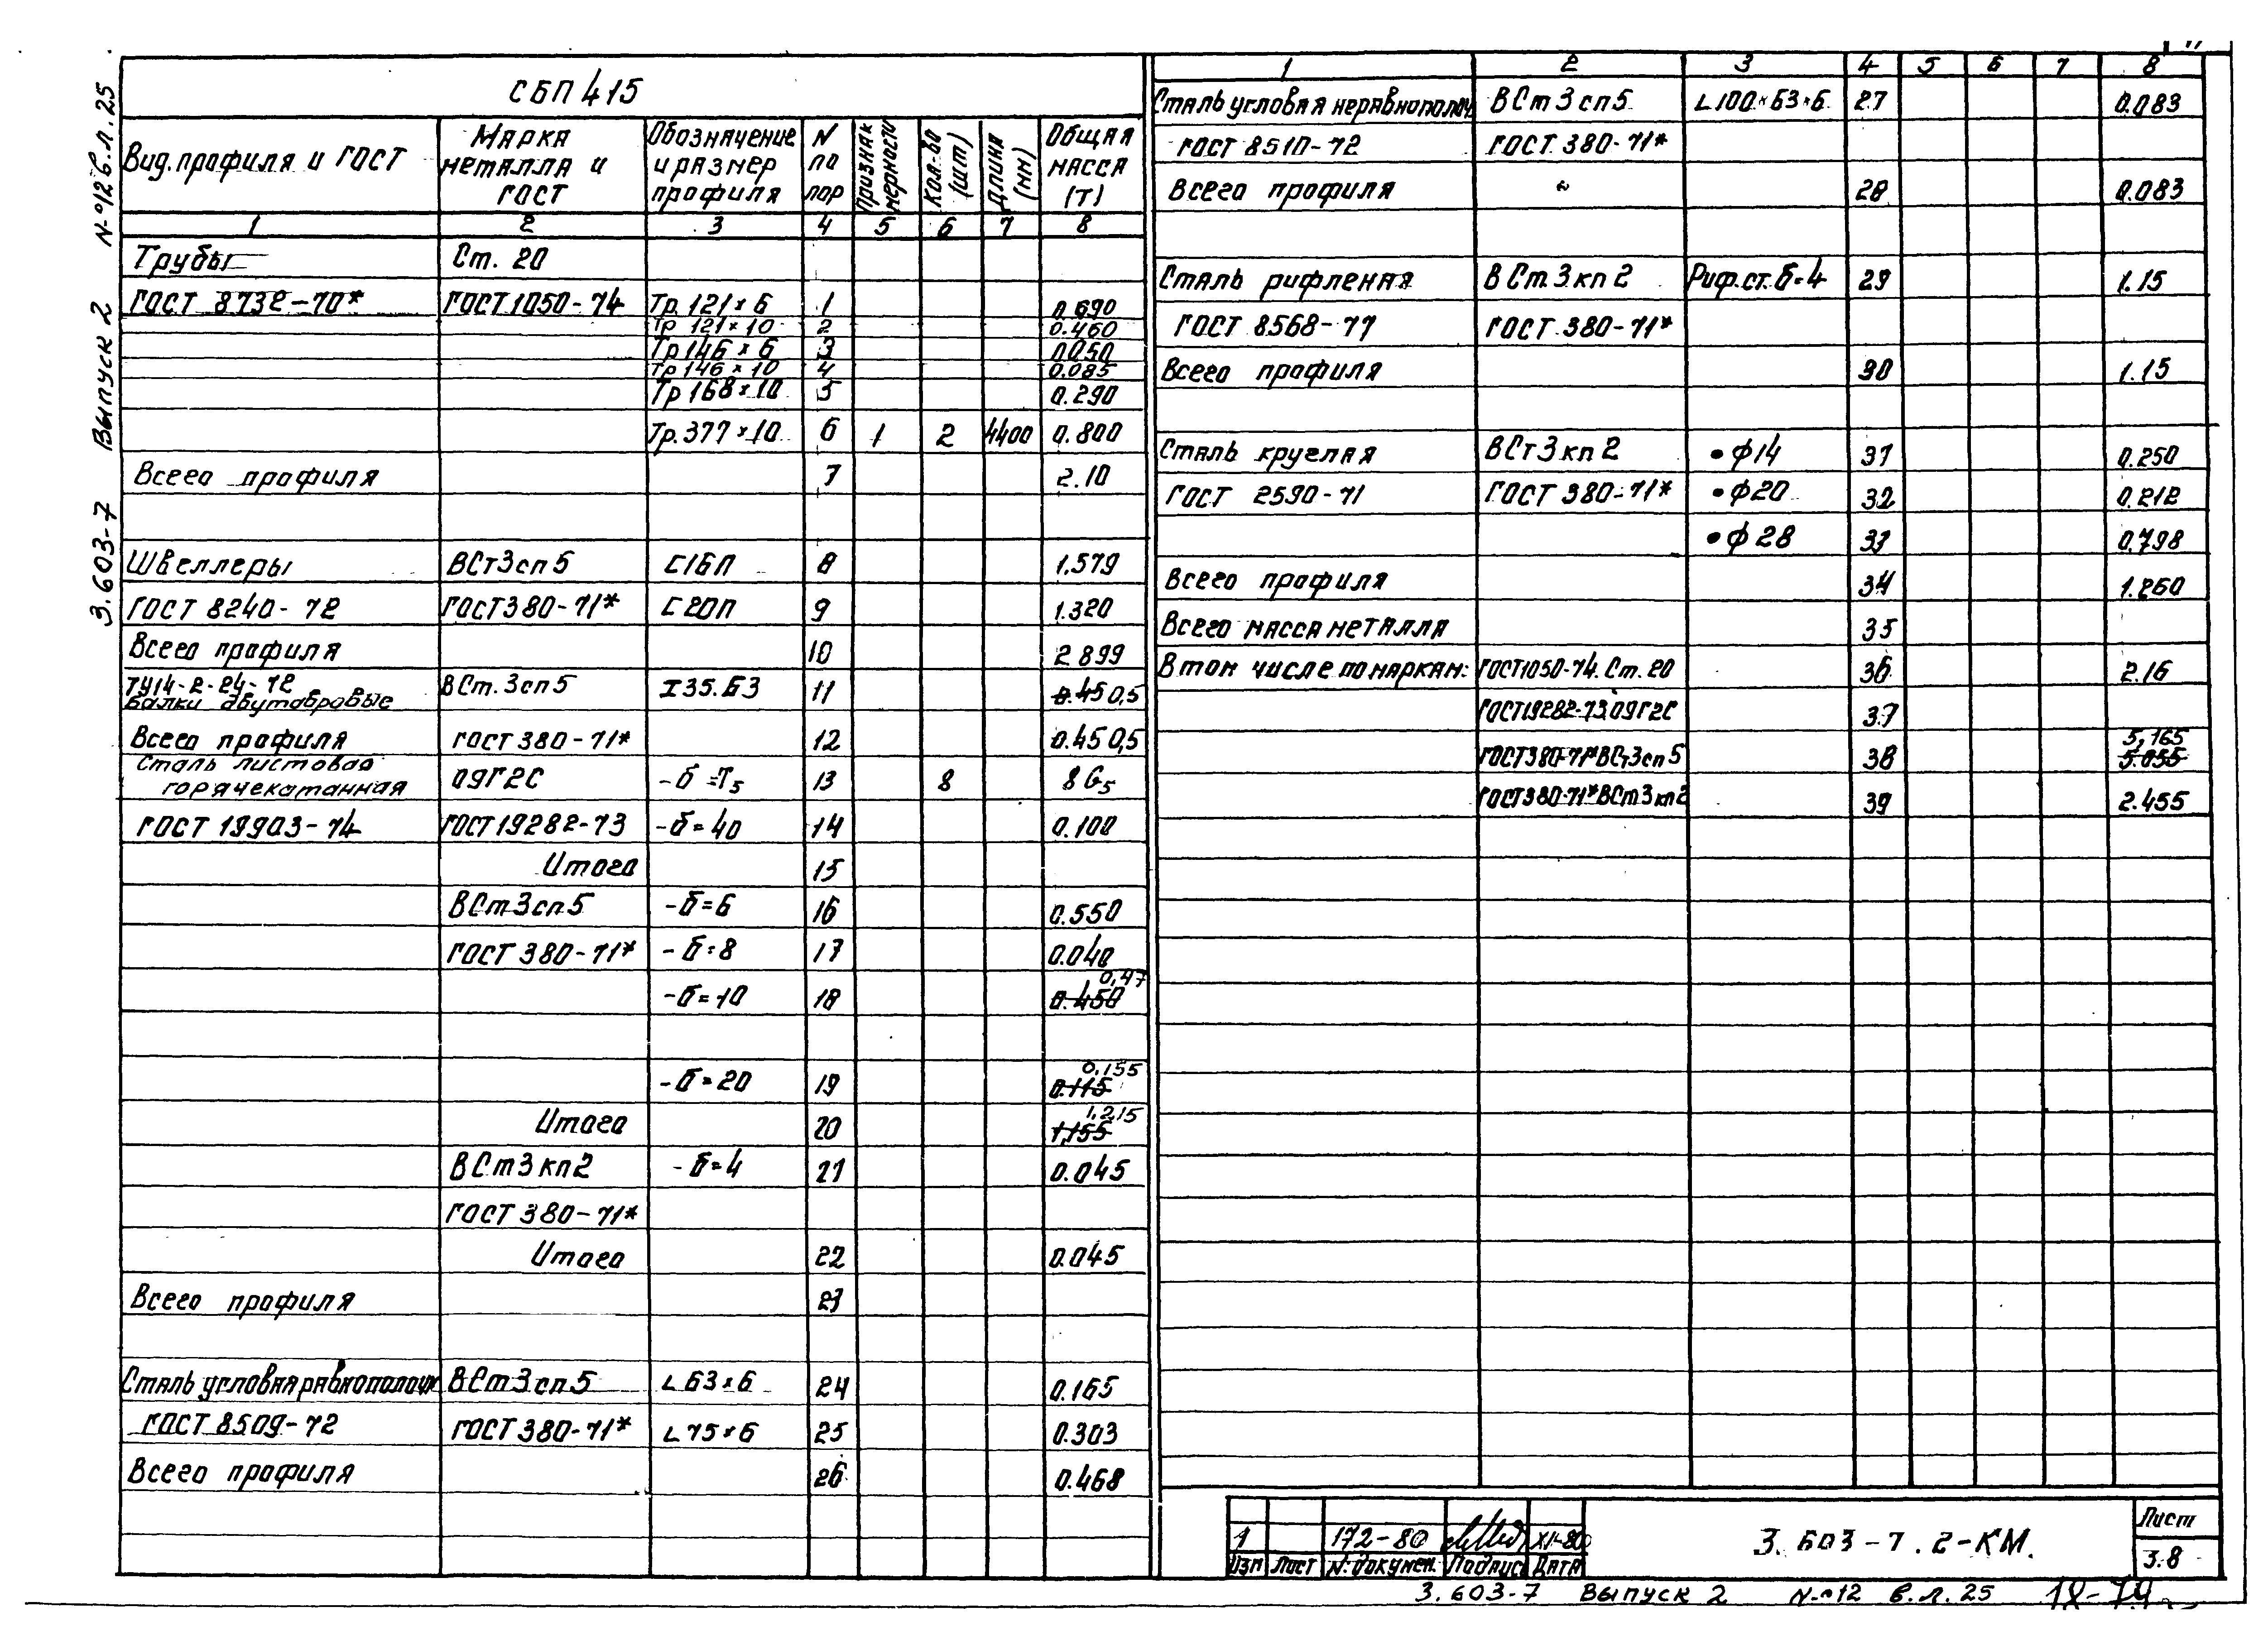 СБП 415
Вид. профиля и ГОСТ | Марка металла и ГОСТ | Обозначение и размер профиля | N по пор | Признак мерности | Кол-во (шт) | Длина (мм) | Общая масса (т)
1 2 3 4 5 6 7 8
Трубы Ст. 20
ГОСТ 8732-70* ГОСТ 1050-74 Тр. 121×6 1 0.690
Тр 121×10 2 0.460
Тр 146×6 3 0.050
Тр 146×10 4 0.085
Тр 168×10 5 0.290
Тр. 377×10 6 1 2 4400 0.800
Всего профиля 7 2.10
Швеллеры ВСт3сп5 С16П 8 1.579
ГОСТ 8240-72 ГОСТ 380-71* С20П 9 1.320
Всего профиля 10 2 899
ТУ14-2-24-72
Балки двутавровые ВСт.3сп5 I35.Б3 11 0.45 0,5
Всего профиля ГОСТ 380-71* 12 0.45 0,5
Сталь листовая
горячекатанная 09Г2С 13 8
ГОСТ 19903-74 ГОСТ 19282-73 -δ=40 14 0.100
Итого 15
ВСт3сп5 -δ=6 16 0.550
ГОСТ 380-71* -δ=8 17 0.040
0,47
-δ=10 18 0.450
0,155
-δ=20 19 0.115
1,215
Итого 20 1,155
ВСт3кп2 -δ=4 21 0.045
ГОСТ 380-71*
Итого 22 0.045
Всего профиля 23
Сталь угловая равнополоч ВСт3сп5 L 63×6 24 0.165
ГОСТ 8509-72 ГОСТ 380-71* L 75×6 25 0.303
Всего профиля 26 0.468
1 2 3 4 5 6 7 8
Сталь угловая неравнополоч ВСт3сп5 L 100×63×6 27 0.083
ГОСТ 8510-72 ГОСТ 380-71*
Всего профиля " 28 0.083
Сталь рифленая ВСт.3кп2 Риф.ст.δ=4 29 1.15
ГОСТ 8568-77 ГОСТ 380-71*
Всего профиля 30 1.15
Сталь круглая ВСт3кп2 •ф14 31 0.250
ГОСТ 2590-71 ГОСТ 380-71* •ф20 32 0.212
•ф28 33 0.798
Всего профиля 34 1.260
Всего масса металла 35
В том числе по маркам: ГОСТ1050-74. Ст. 20 36 2.16
ГОСТ19282-73 09Г2С 37
5,165
ГОСТ380-71*ВСт3сп5 38 5.055
ГОСТ380-71*ВСт3кп2 39 2.455
1 172-80 XI-80
Изм Лист N.докумен. Подпис Дата
3.603-7.2-КМ.
Лист
3.8
3.603-7 Выпуск 2 N-°12 в.л.25
3.603-7 Выпуск 2 N-°12 в.л.25